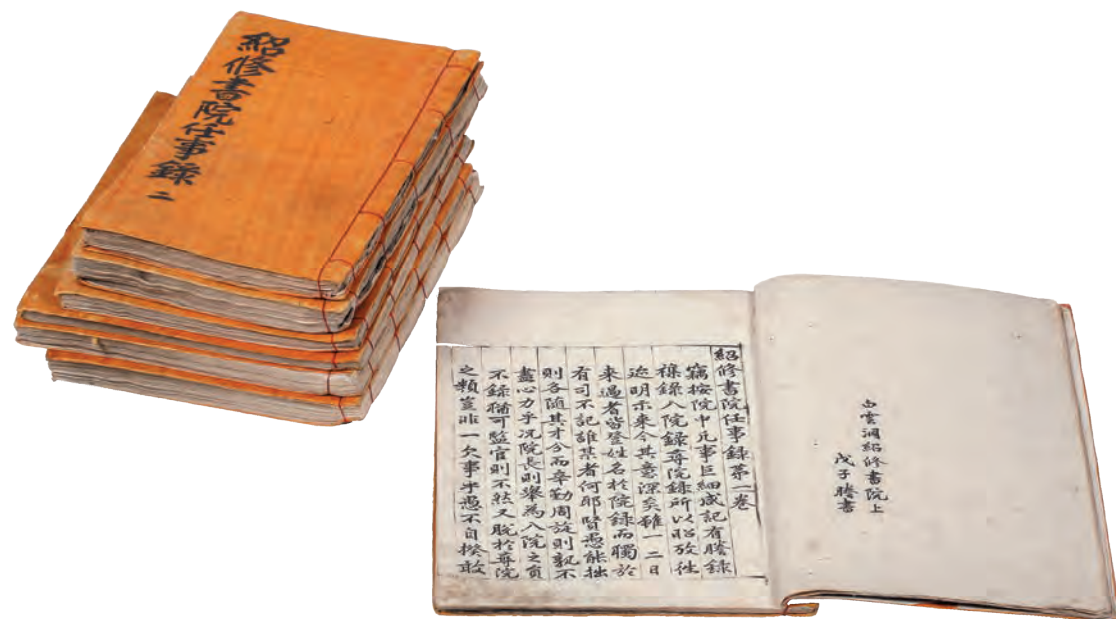 紹修書院任事錄 二
白雲洞紹修書院上
戊子謄書
紹修書院任事錄第一卷
竊按院中凡事巨細咸記有謄錄
襍錄入院錄尋院錄所以昭攷往
迹明示来今其意深矣雖一二日
来過者皆登姓名於院錄而獨於
有司不記誰某者何耶賢愚能拙
則各隨其才分而辛勤周旋則孰不
盡心力乎况院長則舉為入院之負
不錄猶可監官則不然又脫於尋院
之類豈非一欠事乎愚不自揆敢